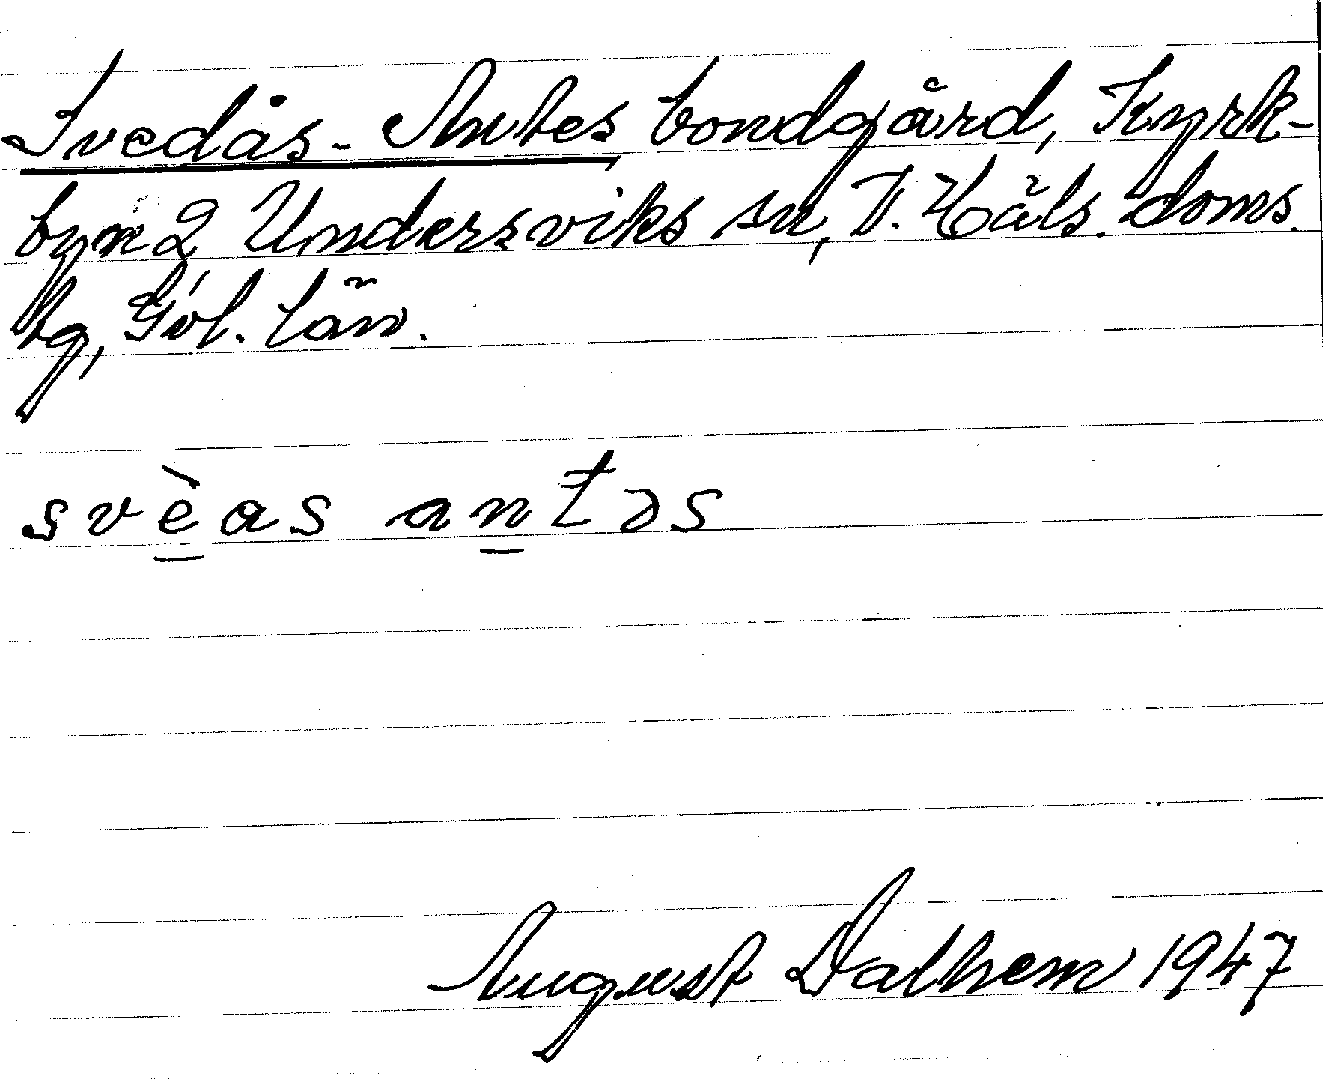 Svedås-Antes bondgård, Kyrk-
byn 2 Undersviks sn, V. Häls. doms.
tg, Gvl. län.
svèas antəs
August Dalhem 1947